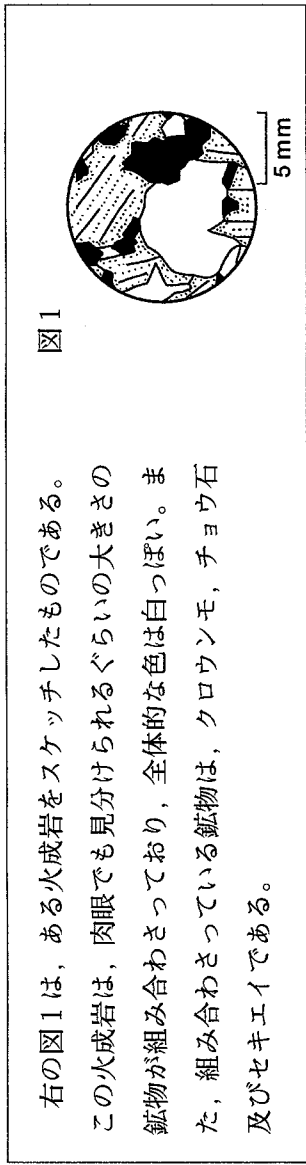 右の図1は,ある火成岩をスケッチしたものである。
この火成岩は,肉眼でも見分けられるぐらいの大きさの
鉱物が組み合わさっており,全体的な色は白っぽい。ま
た,組み合わさっている鉱物は,クロウンモ,チョウ石
及びセキエイである。
図1
5mm